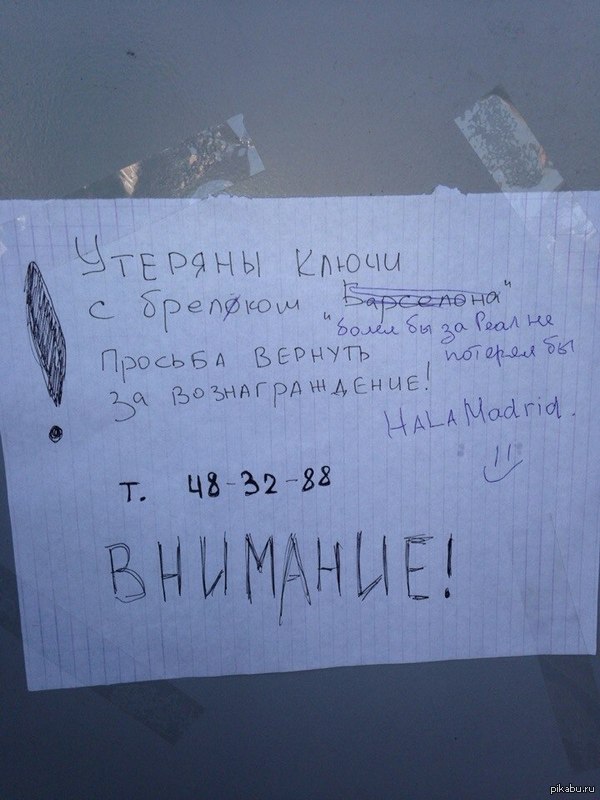 Утеряны ключи
с брелоком Барселона"
"болел бы за Реал не
потерял бы
Просьба вернуть
за вознаграждение!
HALA Madrid.
т. 48-32-88
ВНИМАНИЕ!
pikabu.ru